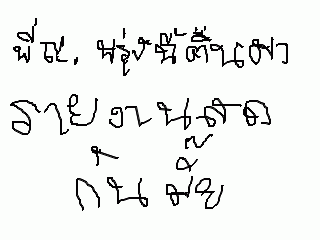 พี่ๆ. พรุ่งนี้ตื่นมา
รายงานสด
กัน มั้ย